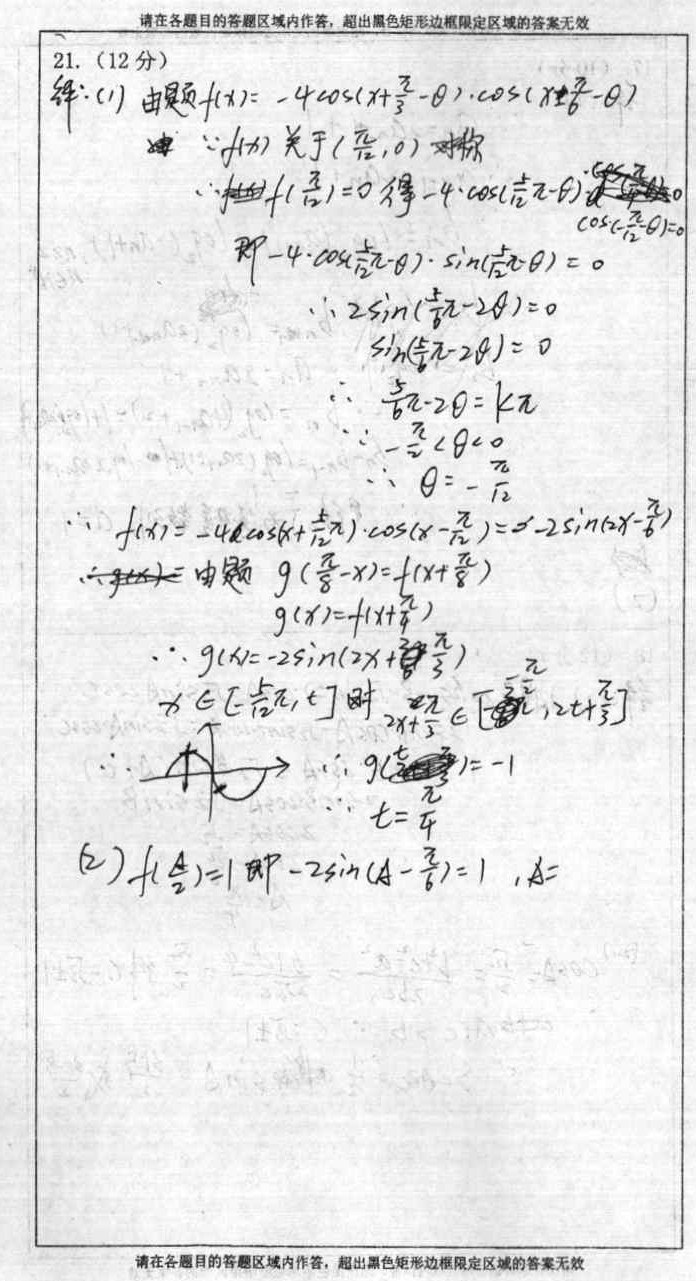 请在各题目的答题区域内作答，超出黑色矩形边框限定区域的答案无效
21.（12分）
解:(1) 由题f(x)= -4cos(x+π/3-θ)·cos(x-π/6-θ)
∵f(x) 关于(π/12,0) 对称
∴f(π/12)=0 得 -4·cos(5/12π-θ)·cos(-π/12-θ)=0
即-4·cos(5/12π-θ)·sin(5/12π-θ)=0
∴2sin(5/6π-2θ)=0
sin(5/6π-2θ)=0
∴ 5/6π-2θ=kπ
∵-π/2<θ<0
∴ θ=-π/12
∴ f(x)= -4cos(x+5/12π)·cos(x-π/12)=-2sin(2x-π/6)
由题 g(π/8-x)=f(x+π/8)
g(x)=f(x+π/4)
∴g(x)=-2sin(2x+π/3)
x∈[-5/12π,t]时 2x+π/3∈[-π/2,2t+π/3]
∴ ∴ g( )=-1
∴ t=π/4
(2) f(A/2)=1 即 -2sin(A-π/6)=1 ,A=
请在各题目的答题区域内作答，超出黑色矩形边框限定区域的答案无效